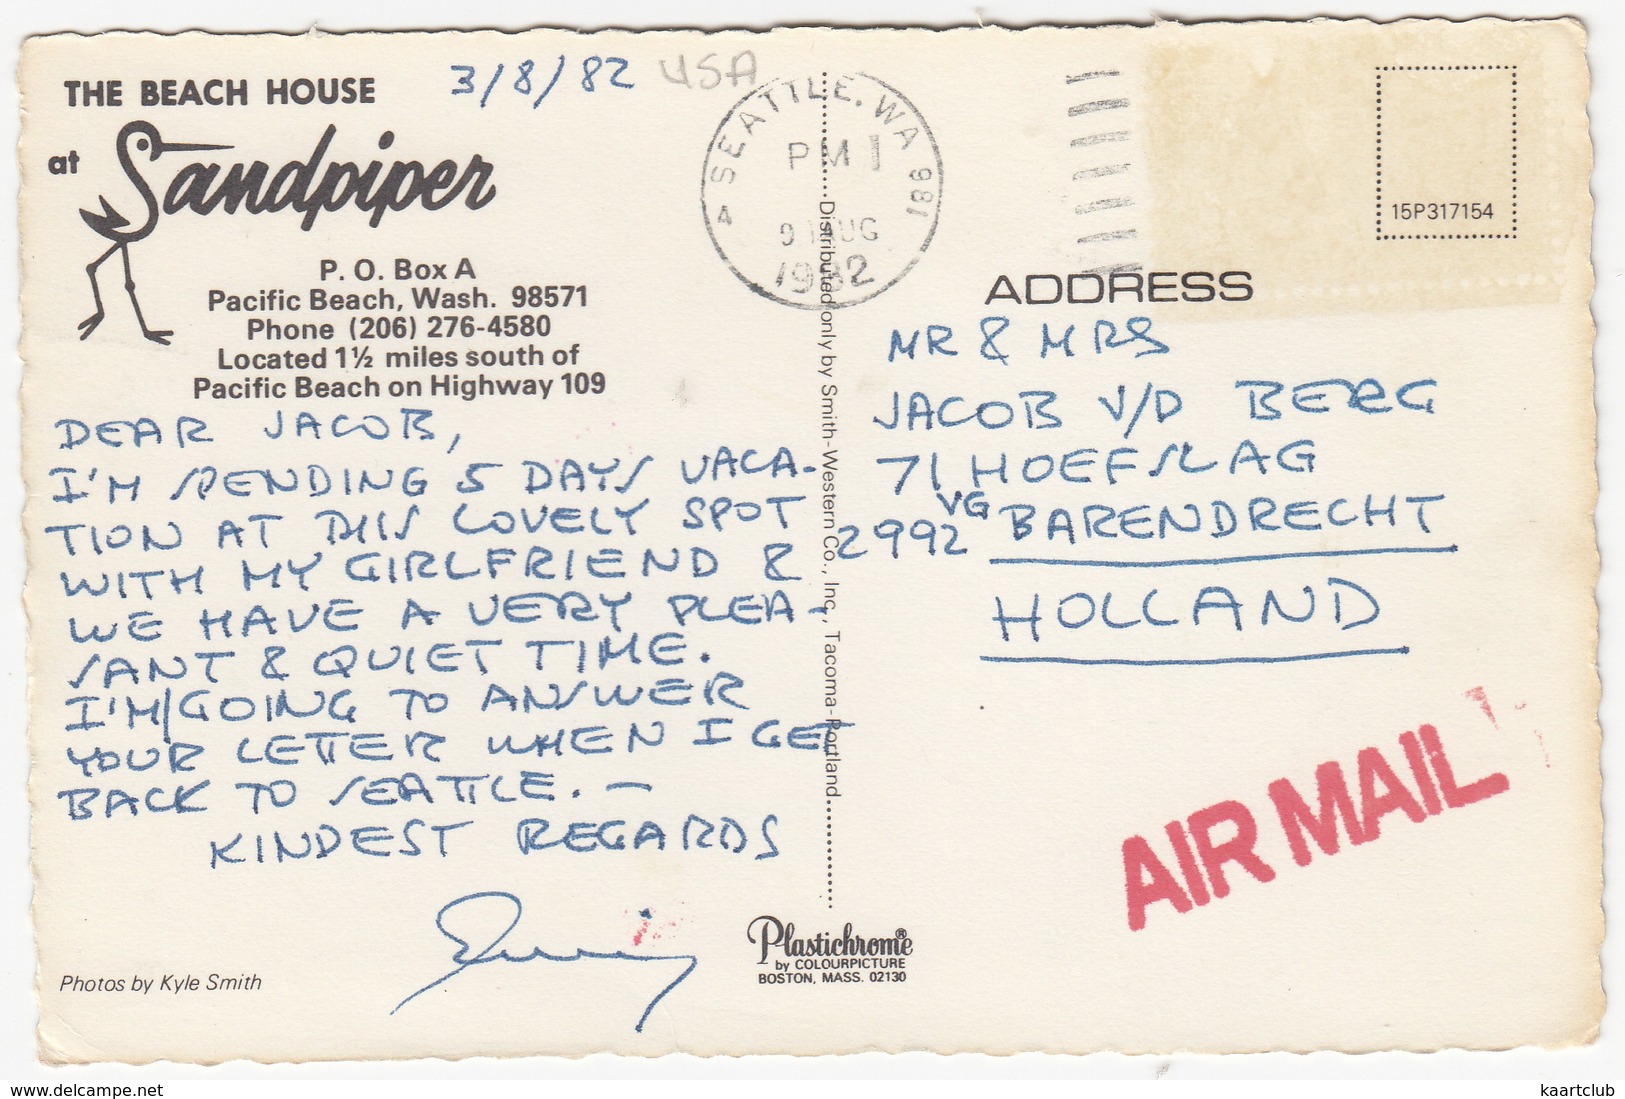 THE BEACH HOUSE
at Sandpiper
P. O. Box A
Pacific Beach, Wash. 98571
Phone (206) 276-4580
Located 1½ miles south of
Pacific Beach on Highway 109
3/8/82 USA
DEAR JACOB,
I'M SPENDING 5 DAYS VACA-
TION AT THIS LOVELY SPOT
WITH MY GIRLFRIEND &
WE HAVE A VERY PLEA-
SANT & QUIET TIME.
I'M/GOING TO ANSWER
YOUR LETTER WHEN I GET
BACK TO SEATTLE. —
KINDEST REGARDS
Photos by Kyle Smith
SEATTLE, WA 981
PM
AUG
1982
Distributed only by Smith-Western Co., Inc., Tacoma-Portland
Plastichrome®
by COLOURPICTURE
BOSTON, MASS. 02130
15P317154
ADDRESS
MR & MRS
JACOB V/D BERG
71 HOEFSLAG
2992 VG BARENDRECHT
HOLLAND
AIR MAIL
delcampe.net
kaartclub